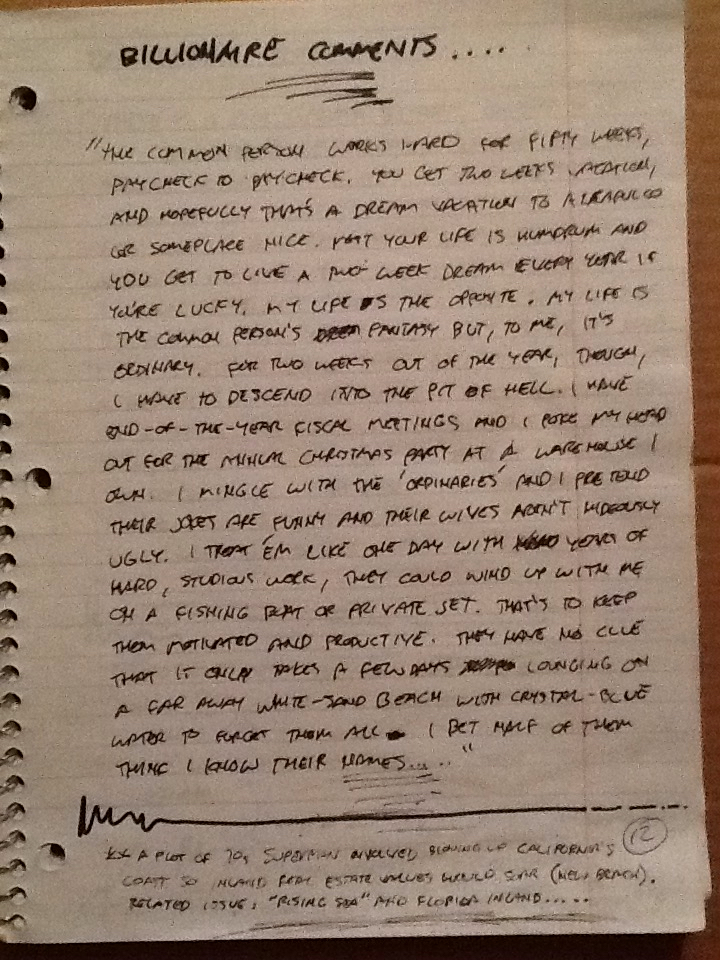 BILLIONAIRE COMMENTS....
"THE COMMON PERSON WORKS HARD FOR FIFTY WEEKS,
PAYCHECK TO PAYCHECK. YOU GET TWO WEEKS VACATION,
AND HOPEFULLY THAT'S A DREAM VACATION TO ACAPULCO
OR SOMEPLACE NICE. YOUR LIFE IS HUMDRUM AND
YOU GET TO LIVE A TWO WEEK DREAM EVERY YEAR IF
YOU'RE LUCKY. MY LIFE IS THE OPPOSITE. MY LIFE IS
THE COMMON PERSON'S FANTASY BUT, TO ME, IT'S
ORDINARY. FOR TWO WEEKS OUT OF THE YEAR, THOUGH,
I HAVE TO DESCEND INTO THE PIT OF HELL. I HAVE
END-OF-THE-YEAR FISCAL MEETINGS AND I POKE MY HEAD
OUT FOR THE ANNUAL CHRISTMAS PARTY AT A WAREHOUSE I
OWN. I MINGLE WITH THE 'ORDINARIES' AND I PRETEND
THEIR JOKES ARE FUNNY AND THEIR WIVES AREN'T HIDEOUSLY
UGLY. I TREAT 'EM LIKE ONE DAY WITH YEARS OF
HARD, STUDIOUS WORK, THEY COULD WIND UP WITH ME
ON A FISHING BOAT OR PRIVATE JET. THAT'S TO KEEP
THEM MOTIVATED AND PRODUCTIVE. THEY HAVE NO CLUE
THAT IT ONLY TAKES A FEW DAYS LOUNGING ON
A FAR AWAY WHITE-SAND BEACH WITH CRYSTAL-BLUE
WATER TO FORGET THEM ALL. I BET HALF OF THEM
THINK I KNOW THEIR NAMES....."
12
A PLOT OF 70s SUPERMAN INVOLVED BLOWING UP CALIFORNIA'S
COAST SO INLAND REAL ESTATE VALUES WOULD SOAR (NEW BEACH).
RELATED ISSUE: "RISING SEA" AND FLORIDA INLAND.....